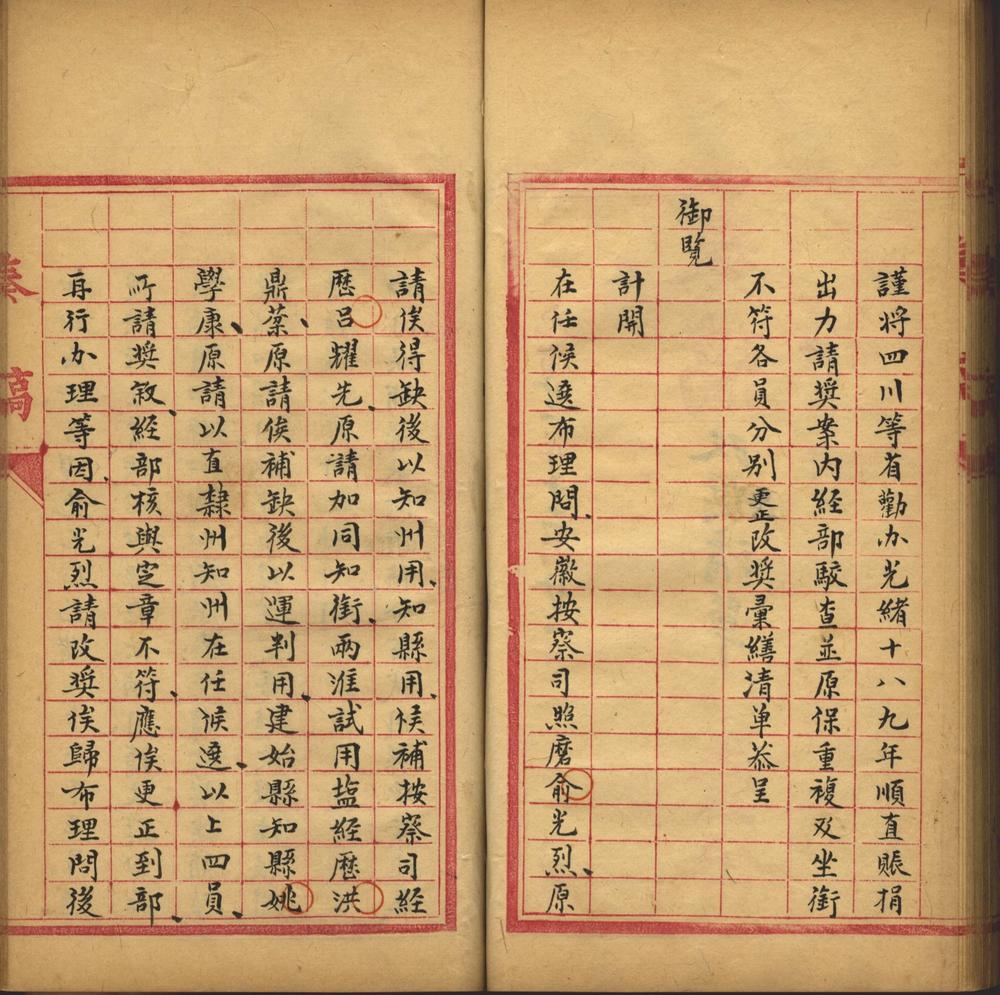 謹將四川等省勸办光緒十八九年順直賬捐
出力請奨案内經部駁查並原保重複及坐銜
不符各員分别更正改奨彙繕清单恭呈
御覽
計開
在任候選布理問、安徽按察司照磨俞光烈、原
請俟得缺後以知州用、知縣用、候補按察司經
歷吕耀先、原請加同知銜、兩淮試用塩經歷洪
鼎棻、原請俟補缺後以運判用、建始縣知縣姚
學康、原請以直隸州知州在任候選、以上四員、
所請奨敘、經部核與定章不符、應俟更正到部、
再行办理等因、俞光烈請改奨俟歸布理問後
奏稿